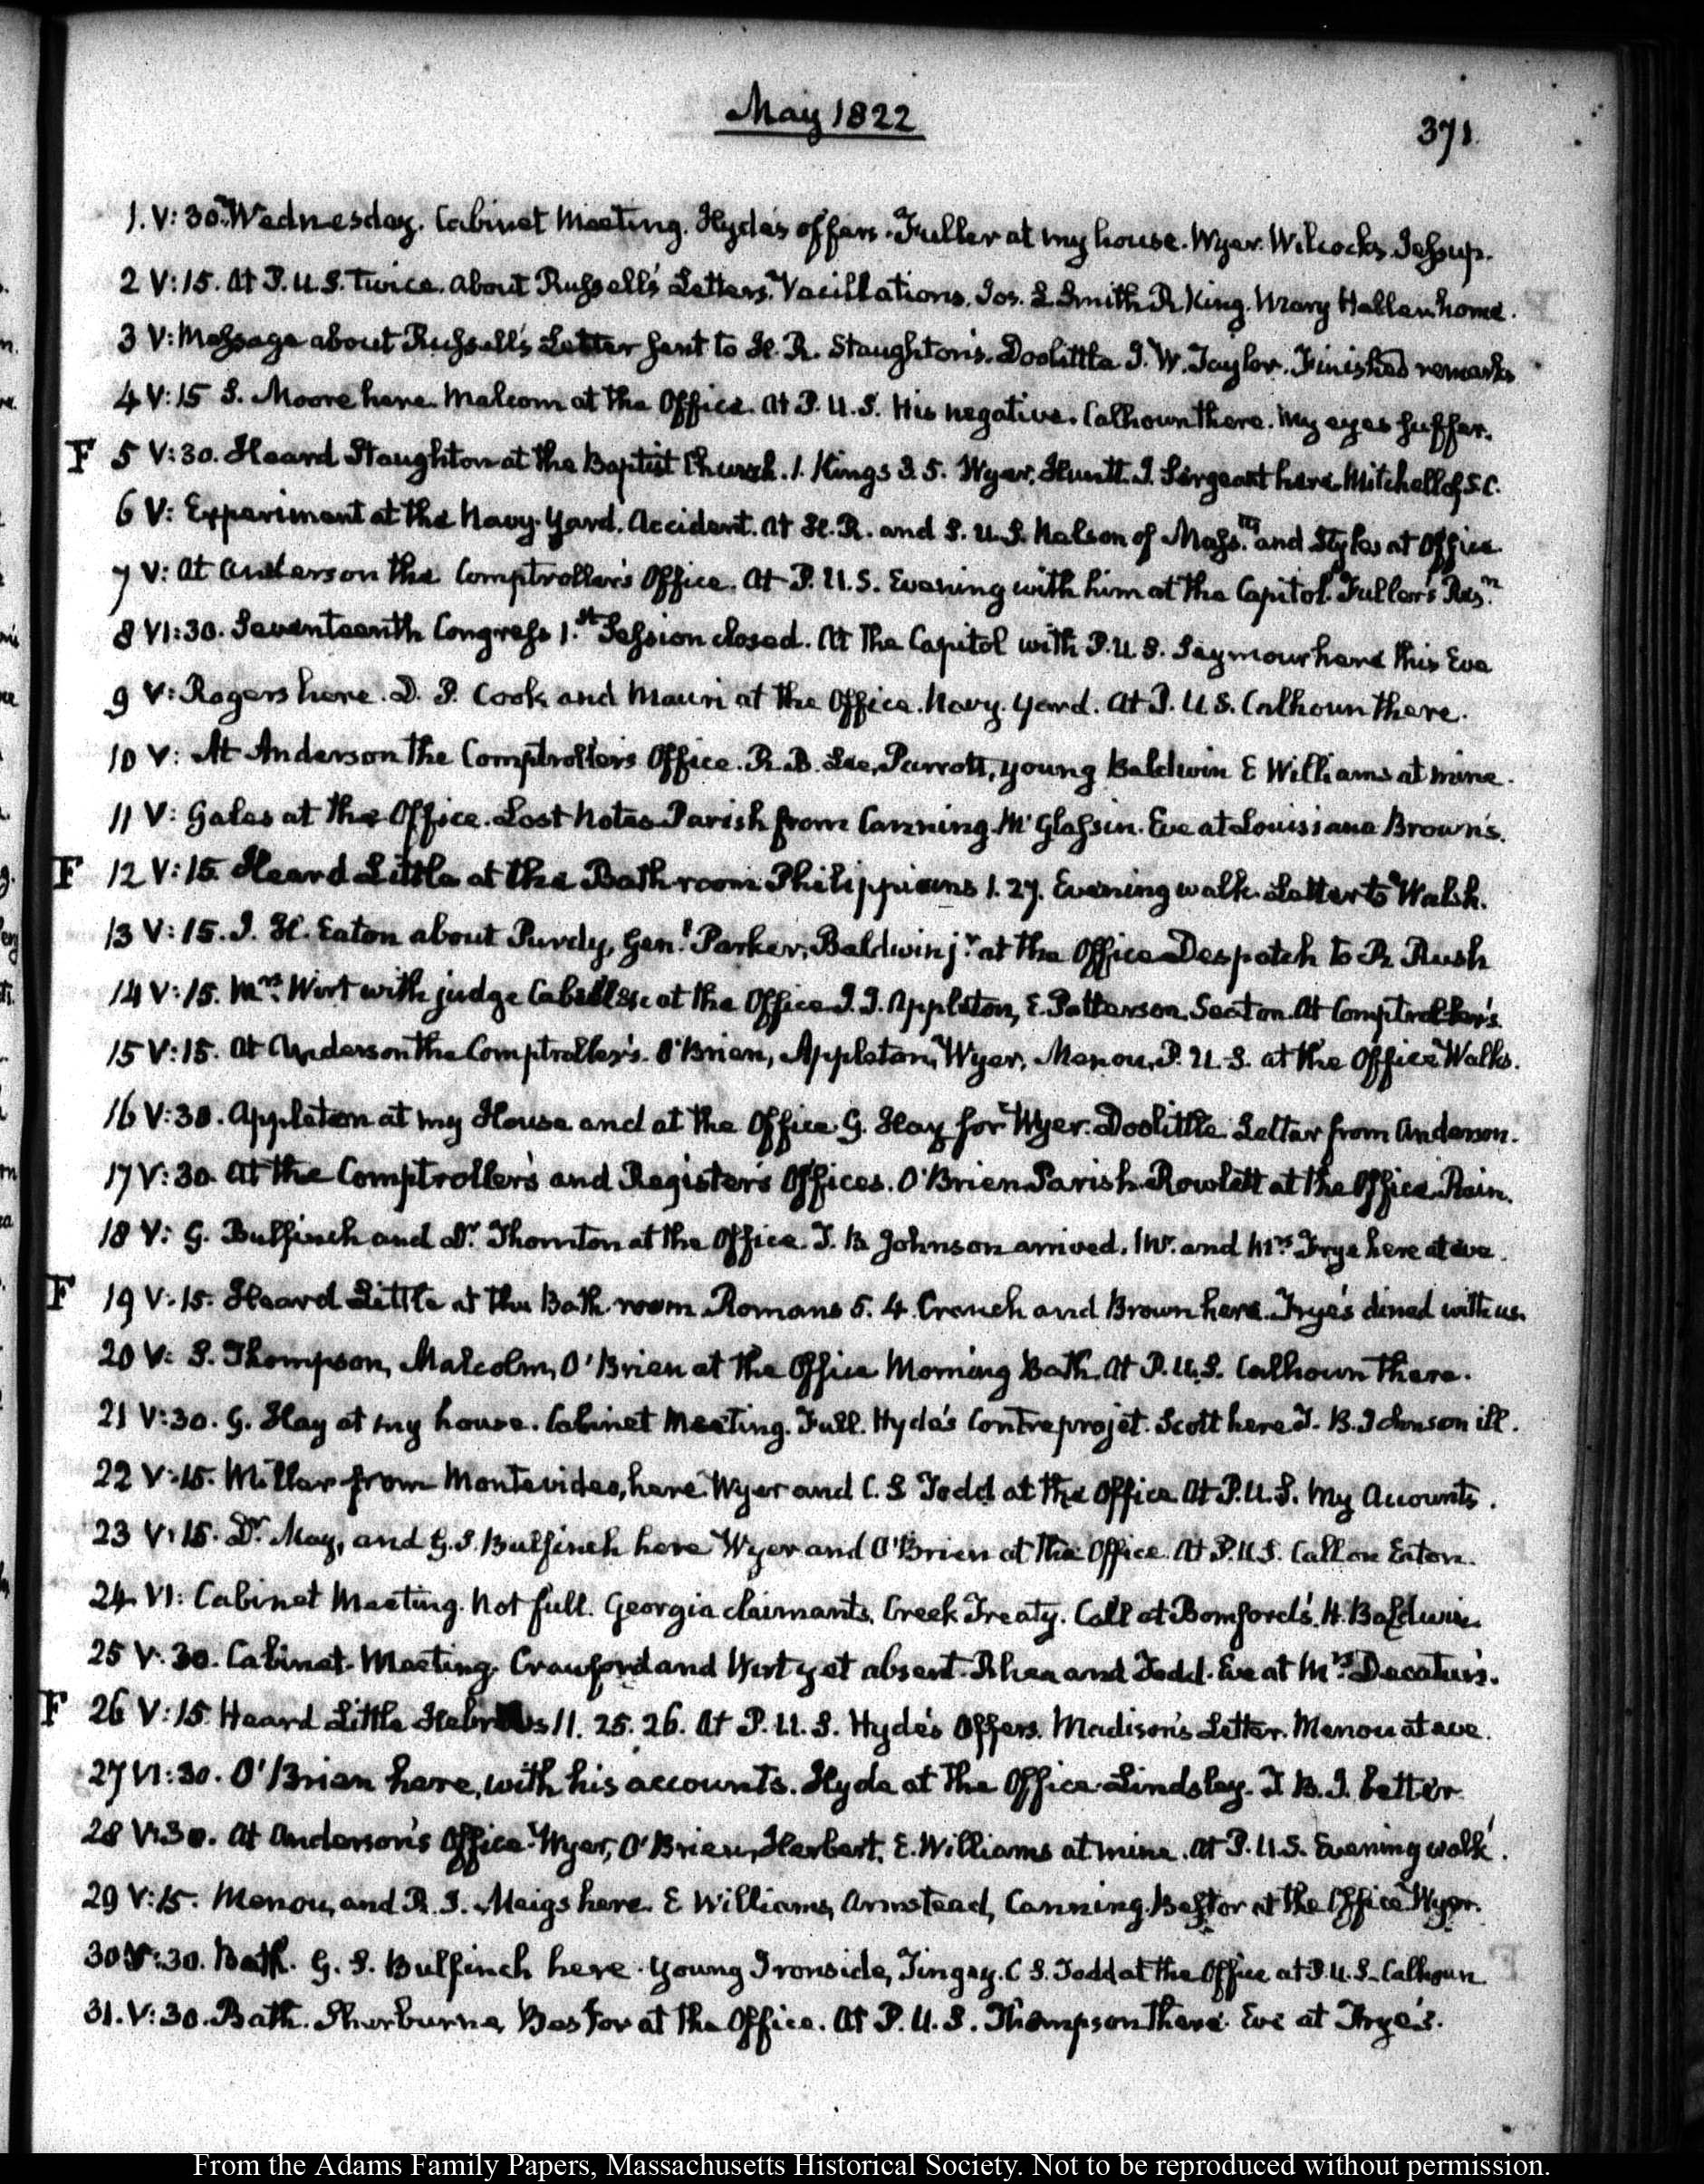 May 1822
371.
1. V: 30. Wednesday. Cabinet Meeting. Hyde's offers. Fuller at my house. Wyer. Wilcocks. Jessup.
2 V: 15. At P. U. S. twice. about Russell's Letters. Vacillations. Jos. L Smith R King. Mary Hellen home.
3 V: Message about Russell's Letter sent to H. R. Staughton's. Doolittle. J. W. Taylor. Finished remarks
4 V: 15 S. Moore here. Malcom at the Office. At P. U. S. His negative. Calhoun there. My eyes suffer.
F 5 V: 30. Heard Staughton at the Baptist Church. 1. Kings 3. 5. Wyer, Huntt. J. Sergeant here. Mitchell of S. C.
6 V: Experiment at the Navy-Yard. Accident. At H. R. and S. U. S. Nelson of Mass.tts and Styles at Office
7 V: At Anderson the Comptroller's Office. At P. U. S. Evening with him at the Capitol. Fuller's Res.n
8 VI: 30. Seventeenth Congress 1.st Session closed. At the Capitol with P. U S. Seymour here this Eve
9 V: Rogers here. D. P. Cook and Mauri at the Office. Navy. Yard. At P. U S. Calhoun there.
10 V: At Anderson the Comptroller's Office. R. B. Lee, Parrott, young Baldwin E Williams at mine.
11 V: Gales at the Office. Lost Notes Parish from Canning. McGlassin. Eve at Louisiana Brown's.
F 12 V: 15. Heard Little at the Bath room Philippians 1. 27. Evening walk. Letter to Walsh.
13 V: 15. J. H. Eaton about Purdy, Gen.l Parker, Baldwin j.r at the Office Despatch to R Rush
14 V: 15. Mrs. Wirt with judge Cabell &c at the Office J. J. Appleton, E. Patterson, Seaton. At Comptroller's
15 V: 15. At Anderson the Comptroller's. O'Brien, Appleton, Wyer, Menou, P. U. S. at the Office Walks.
16 V: 30. Appleton at my House and at the Office G. Hay for Wyer. Doolittle Letter from Anderson.
17 V: 30. At the Comptroller's and Register's Offices. O'Brien Parish Rowlett at the Office. Rain.
18 V: G. Bulfinch and Dr. Thornton at the Office. T. B. Johnson arrived. Mr. and Mrs. Frye here at eve.
F 19 V: 15. Heard Little at the Bath room Romans 5. 4. Cranch and Brown here. Frye's dined with us.
20 V: S. Thompson, Malcolm, O'Brien at the Office Morning Bath. At P. U. S. Calhoun there.
21 V: 30. G. Hay at my house. Cabinet Meeting. Full. Hyde's Contreprojet. Scott here T. B. Johnson ill.
22 V: 15. Miller from Montevideo, here. Wyer and C. S Todd at the Office At P. U. S. My Accounts.
23 V: 15. Dr. May, and G. S. Bulfinch here Wyer and O'Brien at the Office. At P. U S. Call on Eaton.
24 VI: Cabinet Meeting. Not full. Georgia claimants. Creek Treaty. Call at Bomford's. H. Baldwin
25 V. 30. Cabinet. Meeting. Crawford and Wirt yet absent. Rhea and Todd. Eve at Mrs. Decatur's.
F 26 V: 15. Heard Little Hebrews 11. 25. 26. At P. U. S. Hyde's Offers. Madison's Letter. Menou at eve.
27 VI: 30. O'Brien here, with his accounts. Hyde at the Office Lindsley. T. B. J. better
28 V: 30. At Anderson's Office. Wyer, O'Brien, Herbert, E. Williams at mine. At P. U. S. Evening walk.
29 V: 15. Menou, and R. J. Meigs here. E Williams, Armstead, Canning. Bestor at the Office Wyer.
30 V: 30. Bath. G. S. Bulfinch here. Young Ironside, Tingey. C S. Todd at the Office at P. U. S. Calhoun
31. V: 30. Bath. Sherburne, Bestor at the Office. At P. U. S. Thompson there. Eve at Frye's.
From the Adams Family Papers, Massachusetts Historical Society. Not to be reproduced without permission.